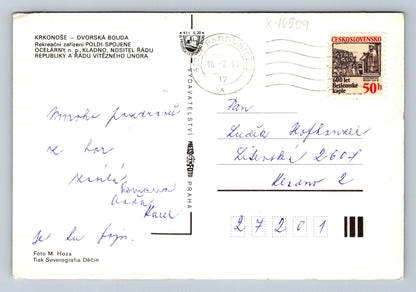 KRKONOŠE – DVORSKÁ BOUDA
Rekreační zařízení POLDI-SPOJENÉ
OCELÁRNY n. p., KLADNO, NOSITEL ŘÁDU
REPUBLIKY A ŘÁDU VÍTĚZNÉHO ÚNORA
Mnoho pozdravů
z hor
Romana
Karel
je tu fajn.
Foto M. Hoza
Tisk Severografia Děčín
VYDAVATELSTVÍ
PRAHA
X-16509
PARDUBICE
ČESKOSLOVENSKO
600 let
Betlémské
kaple
50h
Pan
Luděk
2604
Kladno 2
27201